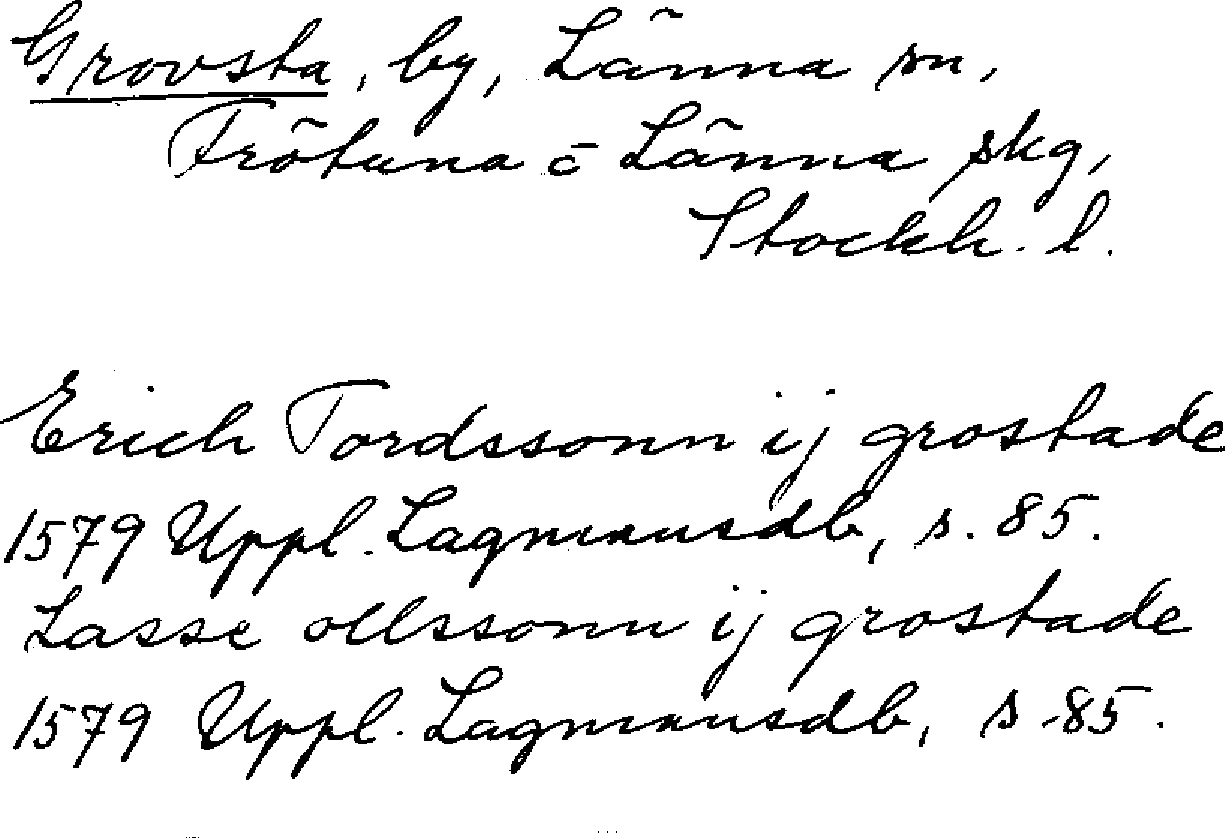 Grovsta, by, Länna sn,
Frötuna o Länna skg,
Stockh. l.
Erich Tordssonn ij grostade
1579 Uppl. Lagmansdb, s. 85.
Lasse ollssonn ij grostade
1579 Uppl. Lagmansdb, s. 85.